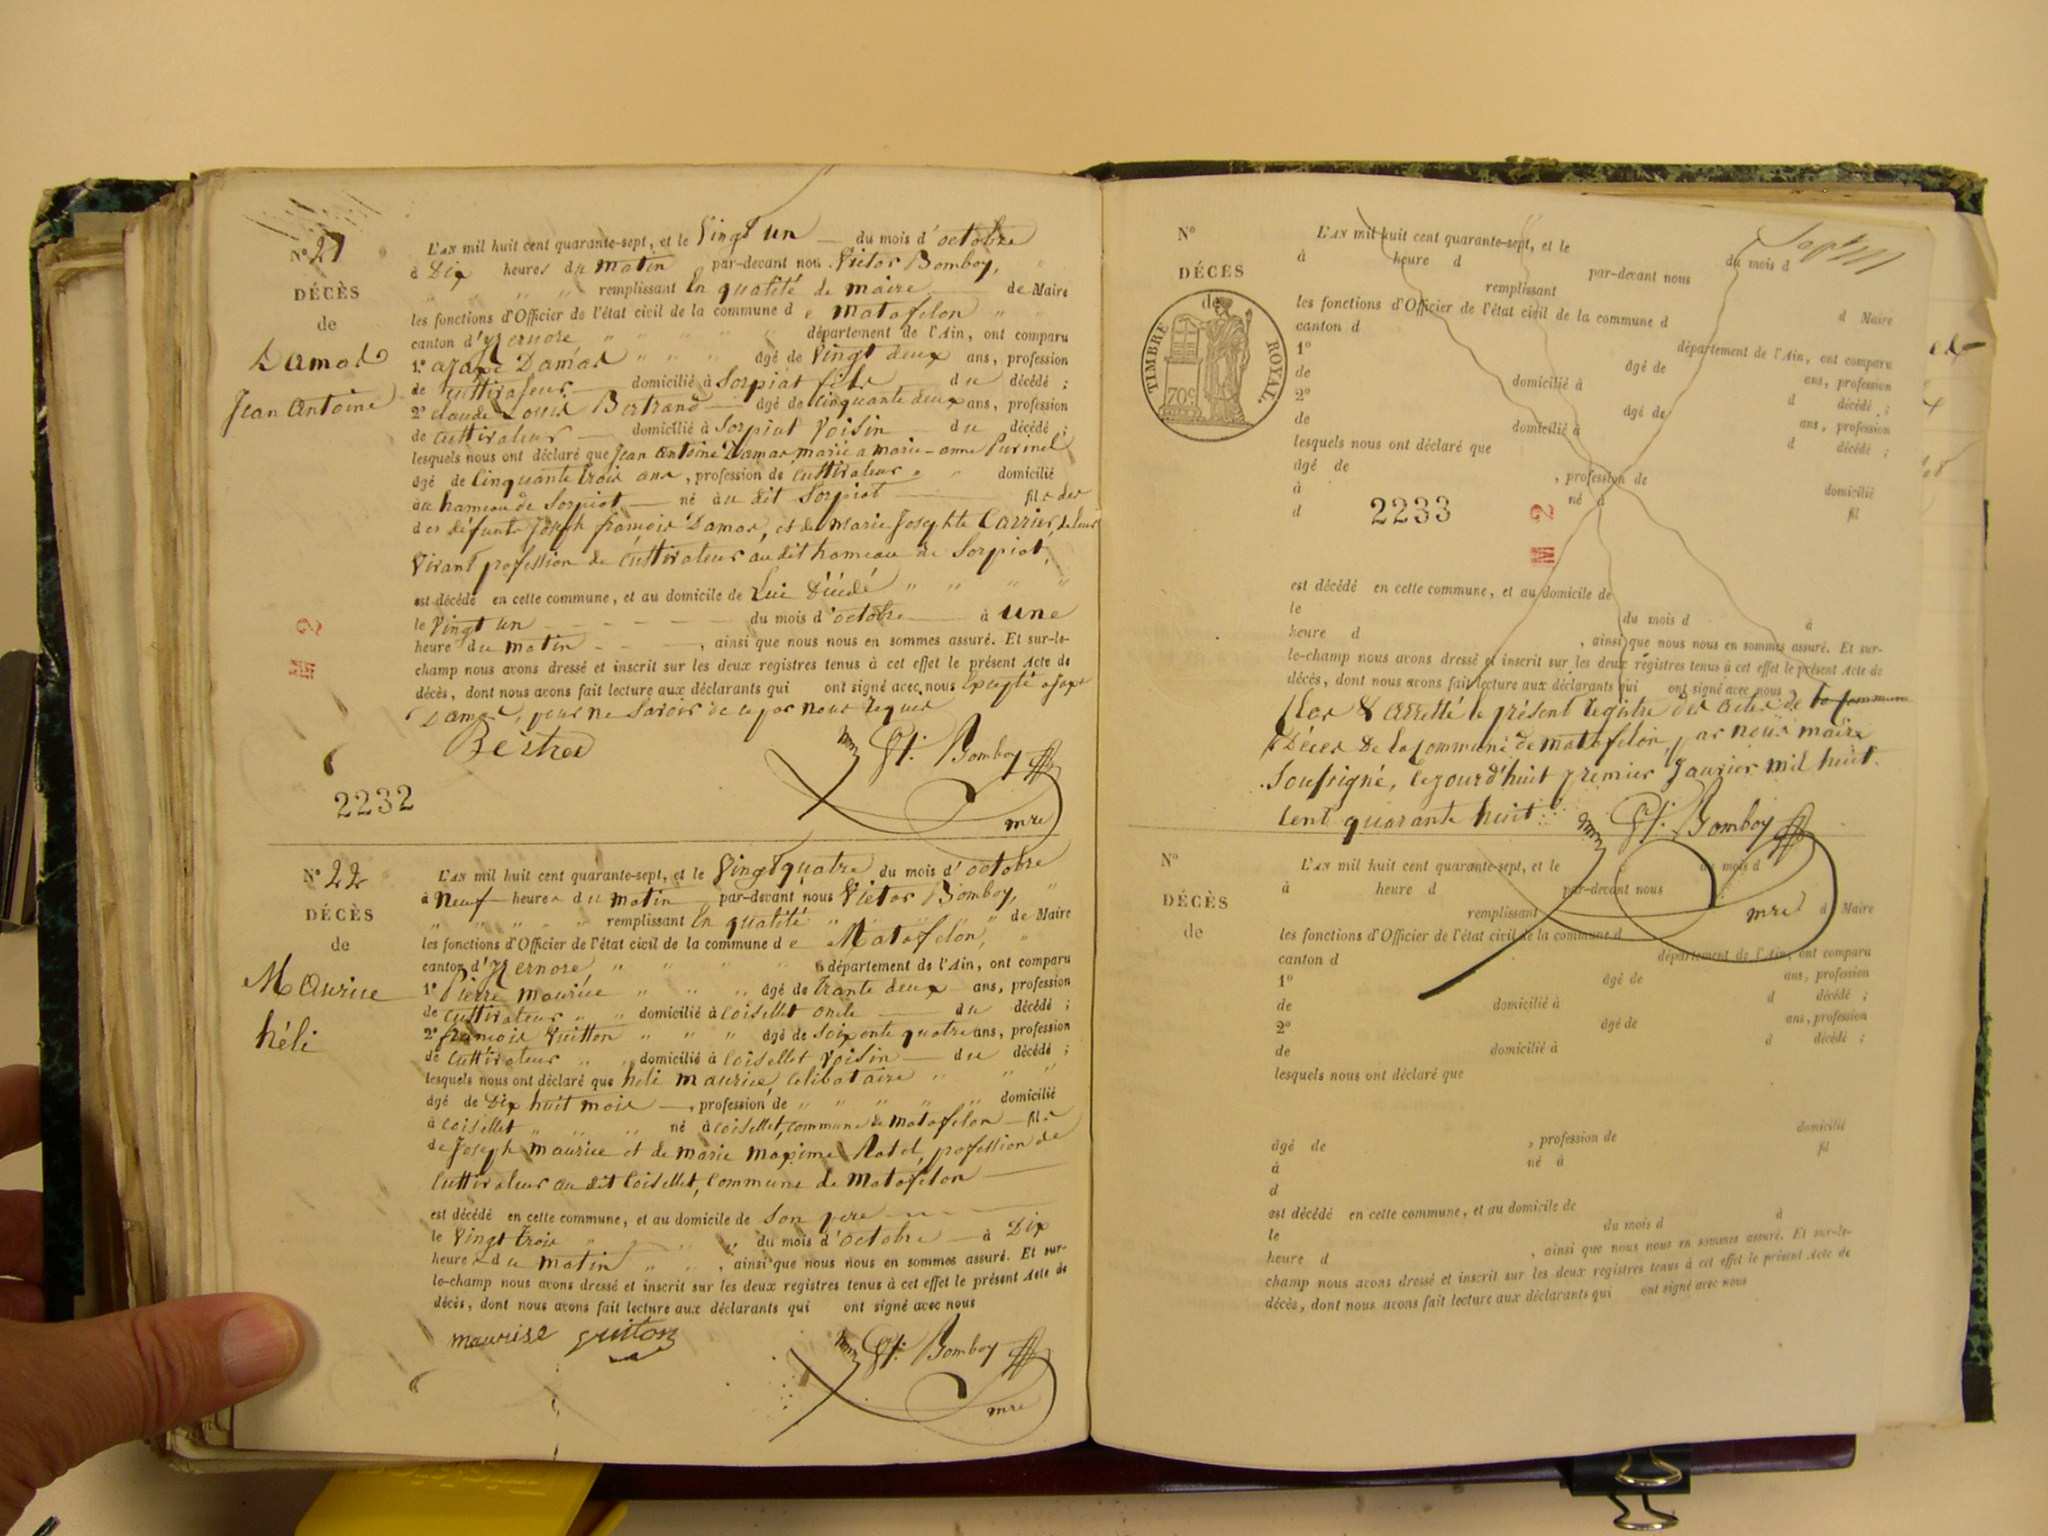 N° 21
DÉCÈS
de
Damas
Jean Antoine
L'AN mil huit cent quarante-sept, et le Vingt un du mois d'octobre
à Dix heures du matin par-devant nous Victor Bomboy,
remplissant en qualité de maire de Maire
les fonctions d'Officier de l'état civil de la commune de matafelon
canton d'Izernore département de l'Ain, ont comparu
1° Damas âgé de Vingt deux ans, profession
de cultivateur domicilié à Sorpiat fils du décédé ;
2° claude Louis Bertrand âgé de Cinquante deux ans, profession
de cultivateur domicilié à Sorpiat Voisin du décédé ;
lesquels nous ont déclaré que Jean Antoine Damas marié a marie-anne
âgé de Cinquante trois ans, profession de cultivateur domicilié
au hameau de Sorpiat né au dit Sorpiat fils des
des défunts Joseph françois Damas, et de marie Josephte Carrier, de leur
Vivant profession de cultivateur au dit hameau de Sorpiat,
est décédé en cette commune, et au domicile de Lui Décédé
le Vingt un du mois d'octobre à une
heure du matin , ainsi que nous nous en sommes assuré. Et sur-le-
champ nous avons dressé et inscrit sur les deux registres tenus à cet effet le présent Acte de
décès, dont nous avons fait lecture aux déclarants qui ont signé avec nous Excepté
Damas, pour ne Savoir de ce par nous requis
Vr. Bomboy
mre
2232
M 2
N° 22
DÉCÈS
de
Maurice
héli
L'AN mil huit cent quarante-sept, et le Vingt quatre du mois d'octobre
à Neuf heures du matin par-devant nous Victor Bomboy,
remplissant en qualité de Maire
les fonctions d'Officier de l'état civil de la commune de Matafelon,
canton d'Izernore département de l'Ain, ont comparu
1° Pierre maurice âgé de trante deux ans, profession
de cultivateur domicilié à coisellet oncle du décédé ;
2° françois Guitton âgé de Soixente quatre ans, profession
de cultivateur domicilié à Coisellet Voisin du décédé ;
lesquels nous ont déclaré que héli maurice, celibataire
âgé de Dix huit mois , profession de domicilié
à coisellet né à coisellet, commune de matafelon fils
de Joseph maurice et de marie maxime Ratel, profession de
Cultivateur au dit Coisellet, Commune de Matafelon
est décédé en cette commune, et au domicile de Son pere
le Vingt trois du mois d'octobre à Dix
heures du matin , ainsi que nous nous en sommes assuré. Et sur-
le-champ nous avons dressé et inscrit sur les deux registres tenus à cet effet le présent Acte de
décès, dont nous avons fait lecture aux déclarants qui ont signé avec nous
maurise guiton
Vr. Bomboy
mre
N°
DÉCÈS
de
TIMBRE ROYAL.
70c
L'AN mil huit cent quarante-sept, et le du mois d
à heure d par-devant nous
remplissant d Maire
les fonctions d'Officier de l'état civil de la commune d
canton d département de l'Ain, ont comparu
1° âgé de ans, profession
de domicilié à d décédé ;
2° âgé de ans, profession
de domicilié à d décédé ;
lesquels nous ont déclaré que
âgé de , profession de domicilié
à né à fil
d 2233
M 2
est décédé en cette commune, et au domicile de
le du mois d à
heure d , ainsi que nous nous en sommes assuré. Et sur-
le-champ nous avons dressé et inscrit sur les deux registres tenus à cet effet le présent Acte de
décès, dont nous avons fait lecture aux déclarants qui ont signé avec nous
Clos & arretté le présent registre des actes de la commune
Déces de la Commune de matafelon, par nous maire
Soussigné, cejourd'huit premier Janvier mil huit
Cent quarante huit.
Vr. Bomboy
mre
N°
DÉCÈS
de
L'AN mil huit cent quarante-sept, et le du mois d
à heure d par-devant nous
remplissant d Maire
les fonctions d'Officier de l'état civil de la commune d
canton d département de l'Ain, ont comparu
1° âgé de ans, profession
de domicilié à d décédé ;
2° âgé de ans, profession
de domicilié à d décédé ;
lesquels nous ont déclaré que
âgé de , profession de domicilié
à né à fil
d
est décédé en cette commune, et au domicile de
le du mois d à
heure d , ainsi que nous nous en sommes assuré. Et sur-le-
champ nous avons dressé et inscrit sur les deux registres tenus à cet effet le présent Acte de
décès, dont nous avons fait lecture aux déclarants qui ont signé avec nous